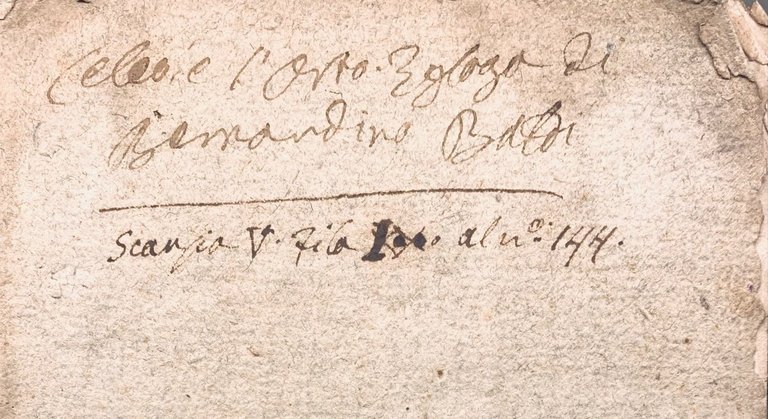 Celeo e l'Orto. Egloga di
Bernardino Baldi
Scansia V. Fila al n.º: 144.